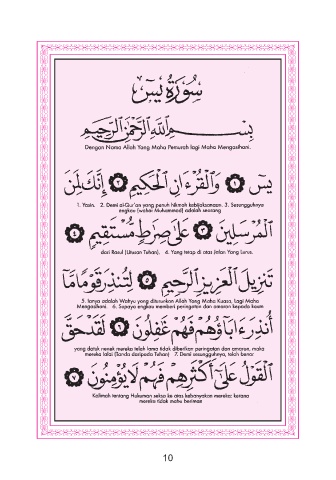 سُورَةُ يسٓ
بِسْمِ اللَّهِ الرَّحْمَٰنِ الرَّحِيمِ
Dengan Nama Allah Yang Maha Pemurah lagi Maha Mengasihani.
يسٓ ١ وَالْقُرْءَانِ الْحَكِيمِ ٢ إِنَّكَ لَمِنَ
1. Yasin. 2. Demi al-Qur'an yang penuh hikmah kebijaksanaan. 3. Sesungguhnya
engkau (wahai Muhammad) adalah seorang
الْمُرْسَلِينَ ٣ عَلَىٰ صِرَٰطٍ مُّسْتَقِيمٍ ٤
dari Rasul (Utusan Tuhan). 4. Yang tetap di atas jalan Yang Lurus.
تَنزِيلَ الْعَزِيزِ الرَّحِيمِ ٥ لِتُنذِرَ قَوْمًا مَّا
5. Ianya adalah Wahyu yang diturunkan Allah Yang Maha Kuasa, Lagi Maha
Mengasihani. 6. Supaya engkau memberi peringatan dan amaran kepada kaum
أُنذِرَ ءَابَآؤُهُمْ فَهُمْ غَٰفِلُونَ ٦ لَقَدْ حَقَّ
yang datuk nenek mereka telah lama tidak diberikan peringatan dan amaran, maka
mereka lalai (Tanda daripada Tuhan) 7. Demi sesungguhnya, telah benar
الْقَوْلُ عَلَىٰٓ أَكْثَرِهِمْ فَهُمْ لَا يُؤْمِنُونَ ٧
Kalimah tentang Hukuman seksa ke atas kebanyakan mereka; kerana
mereka tidak mahu beriman
10